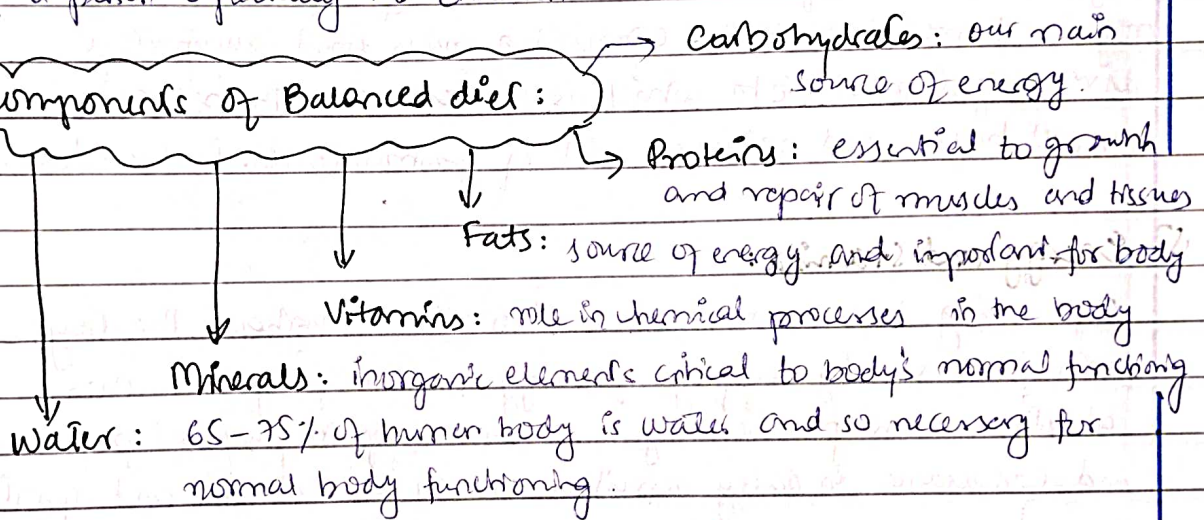 Carbohydrates: our main
source of energy.
omponents of Balanced diet:
Proteins: essential to growth
and repair of muscles and tissues
Fats: source of energy and important for body
Vitamins: role in chemical processes in the body
Minerals: inorganic elements critical to body's normal functioning
Water: 65-75% of human body is water and so necessary for
normal body functioning.